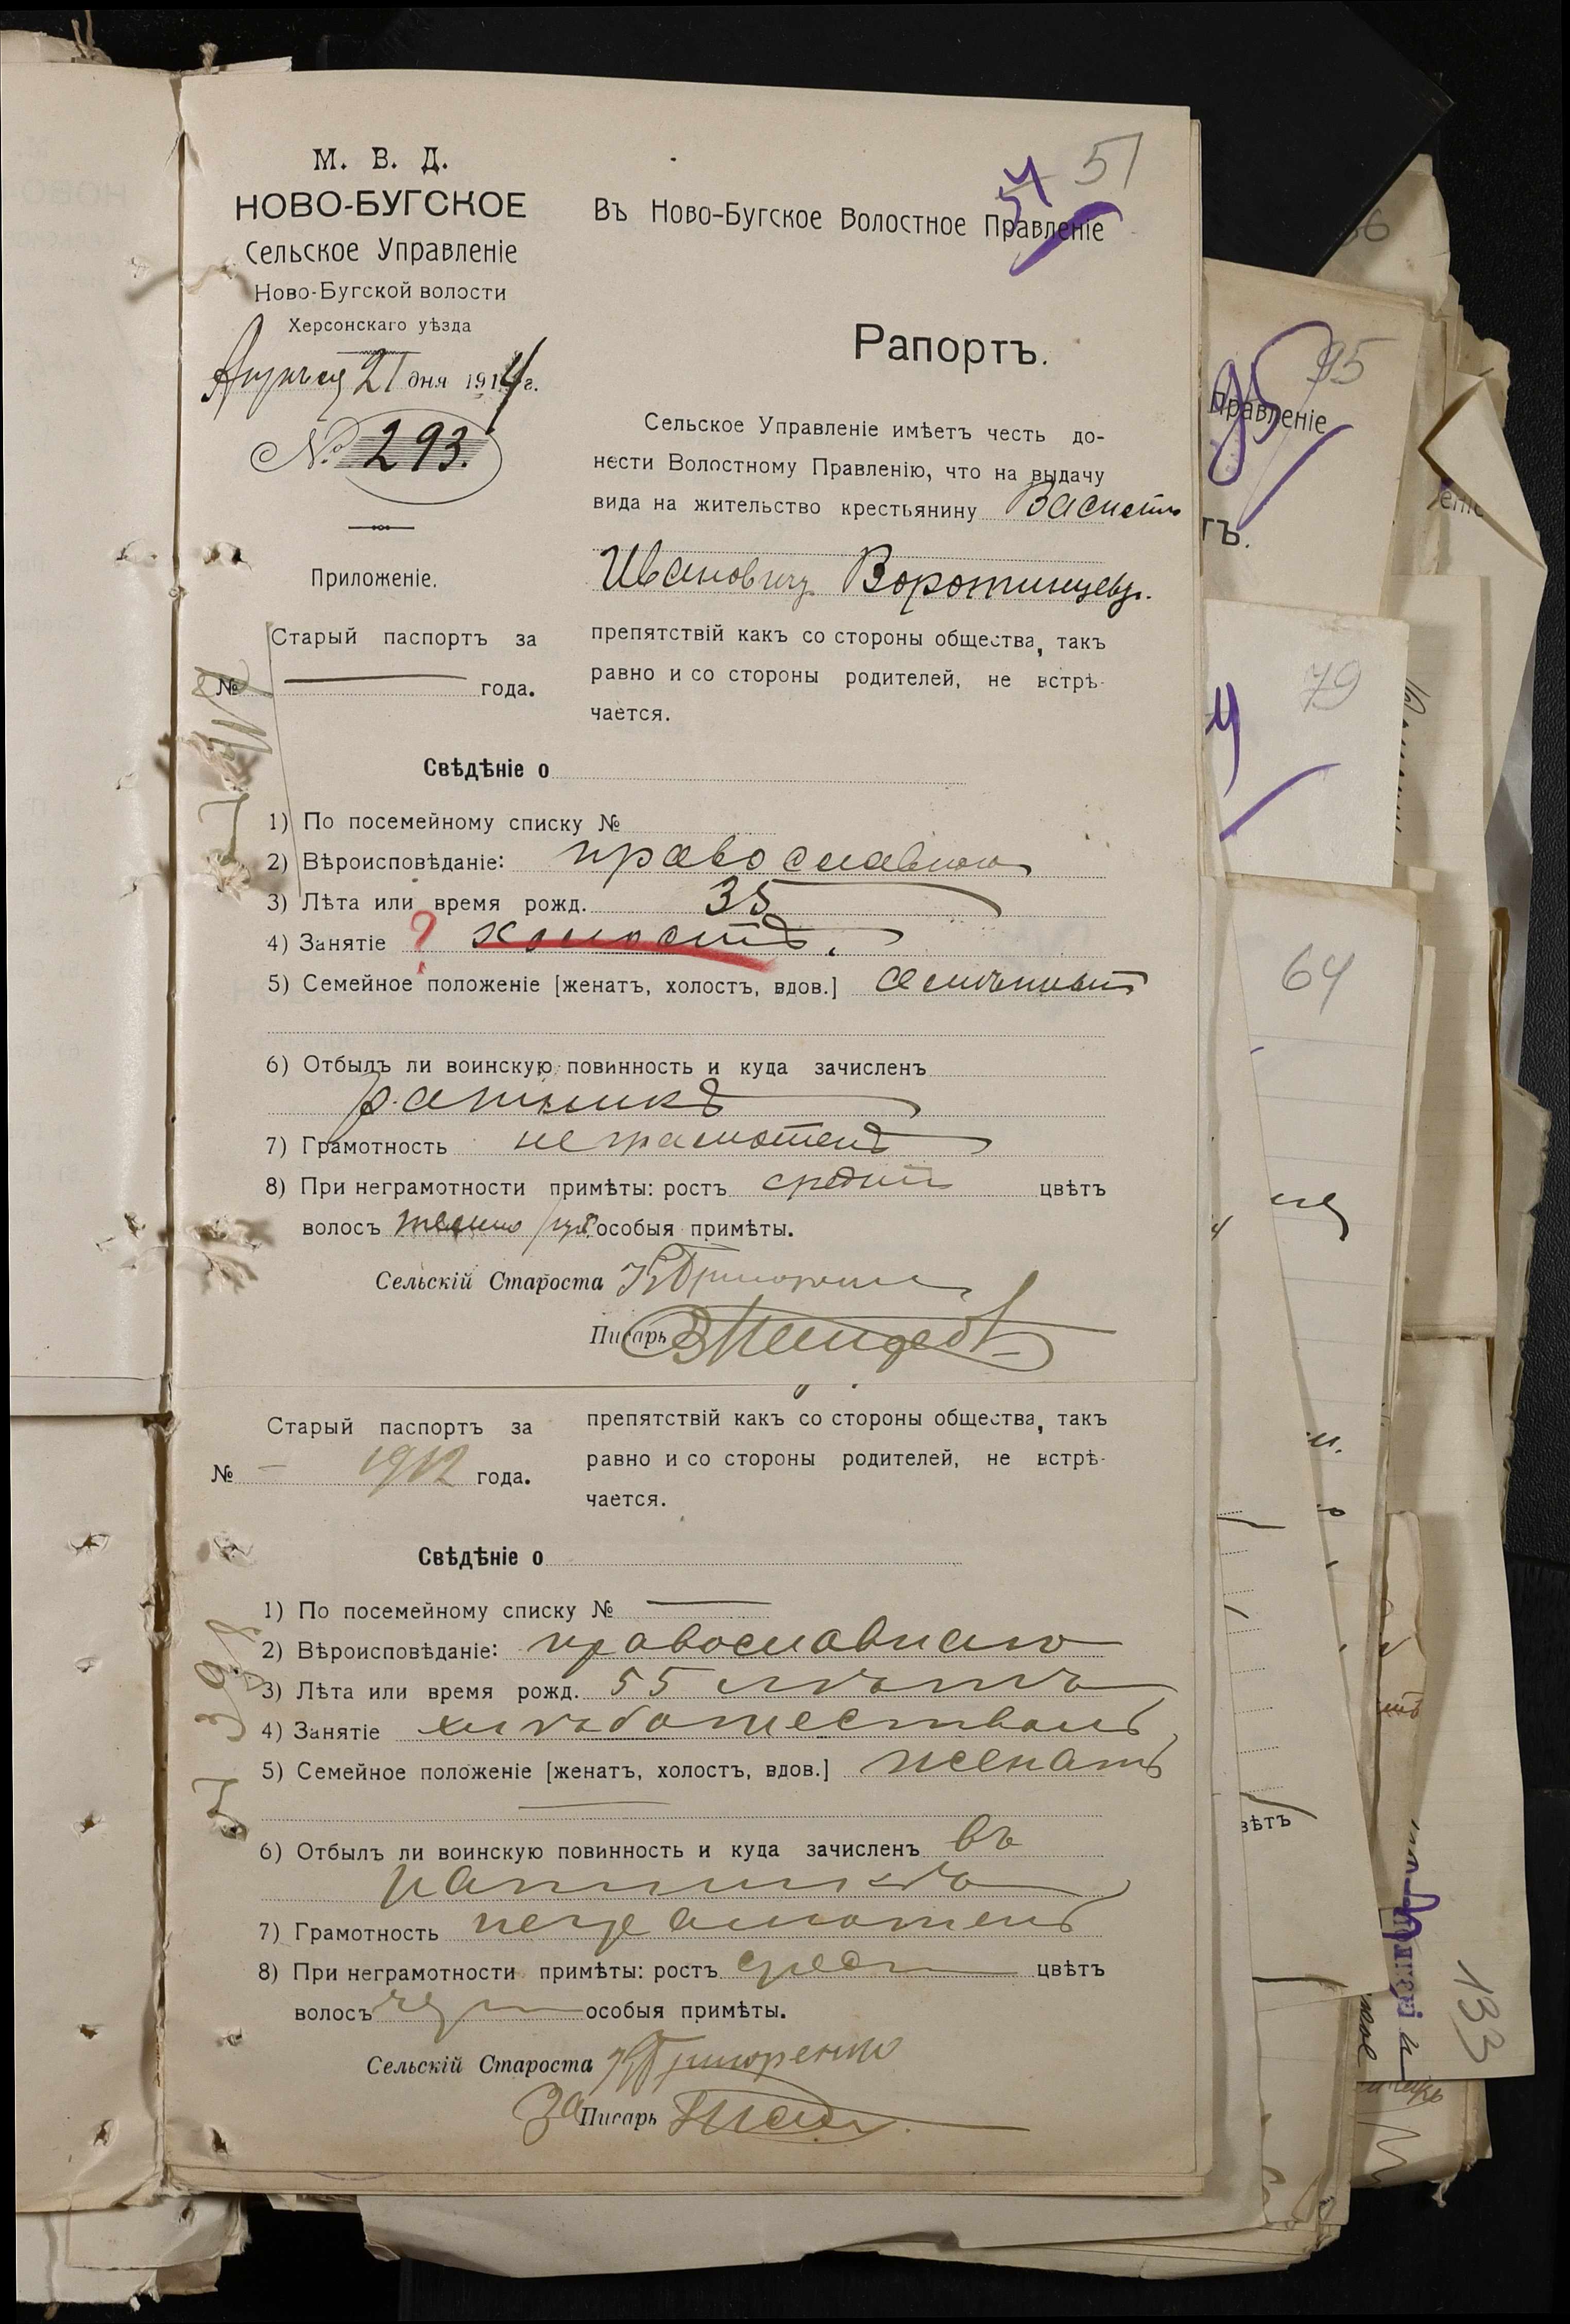 51
М. В. Д.
НОВО-БУГСКОЕ
Сельское Управленіе
Ново-Бугской волости
Херсонскаго уѣзда
21 дня 1914 г.
№ 293.
Приложеніе.
Старый паспортъ за
№ года.
Въ Ново-Бугское Волостное Правленіе
Рапортъ.
Сельское Управленіе имѣетъ честь до-
нести Волостному Правленію, что на выдачу
вида на жительство крестьянину
Ивановичу Воротинцеву.
препятствій какъ со стороны общества, такъ
равно и со стороны родителей, не встрѣ-
чается.
Свѣдѣніе о
1) По посемейному списку №
2) Вѣроисповѣданіе: православнаго
3) Лѣта или время рожд. 35
4) Занятіе ? холостъ.
5) Семейное положеніе [женатъ, холостъ, вдов.] семейный
6) Отбылъ ли воинскую повинность и куда зачисленъ
ратникъ
7) Грамотность неграмотенъ
8) При неграмотности примѣты: ростъ средній цвѣтъ
волосъ темно рус. особыя примѣты.
Сельскій Староста
Писарь
Старый паспортъ за
№ – 1912 года.
препятствій какъ со стороны общества, такъ
равно и со стороны родителей, не встрѣ-
чается.
Свѣдѣніе о
1) По посемейному списку №
2) Вѣроисповѣданіе: православнаго
3) Лѣта или время рожд. 55 лѣтъ
4) Занятіе хлѣбопашествомъ
5) Семейное положеніе [женатъ, холостъ, вдов.] женатъ
6) Отбылъ ли воинскую повинность и куда зачисленъ въ
7) Грамотность неграмотенъ
8) При неграмотности примѣты: ростъ средн цвѣтъ
волосъ особыя примѣты.
Сельскій Староста Григоренко
За Писарь
95
Правленіе
ТЪ.
79
64
вѣтъ
133